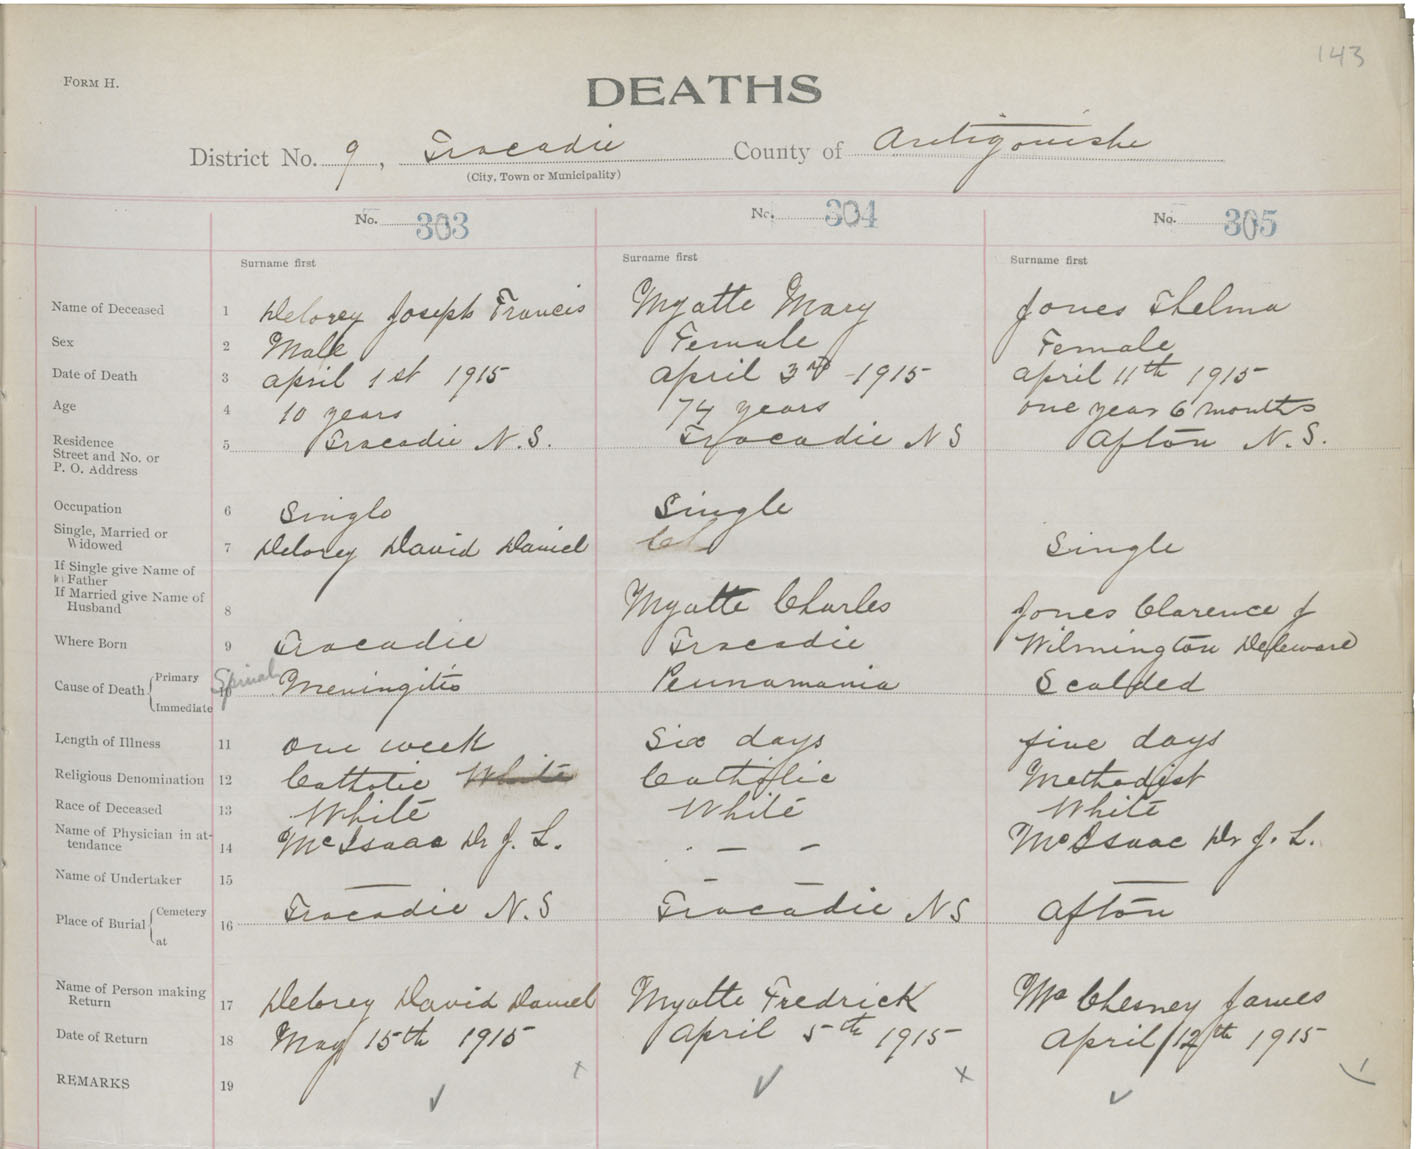 143
FORM H.
DEATHS
District No. 9, Tracadie County of Antigonishe
(City, Town or Municipality)
No. 303 No. 304 No. 305
Surname first Surname first Surname first
Name of Deceased 1 Delorey Joseph Francis Myatte Mary Jones Thelma
Sex 2 Male Female Female
Date of Death 3 april 1st 1915 april 3rd 1915 april 11th 1915
Age 4 10 years 74 years one year 6 months
Residence Street and No. or P. O. Address 5 Tracadie N.S. Tracadie NS Afton N.S.
Occupation 6 Single Single
Single, Married or Widowed 7 Delorey David Daniel Single
If Single give Name of Father
If Married give Name of Husband 8 Myatte Charles Jones Clarence J
Where Born 9 Tracadie Tracadie Wilmington Deleware
Cause of Death Primary Immediate 10 Spinal Meningitis Pennamania Scalded
Length of Illness 11 one week Six days five days
Religious Denomination 12 Catholic White Catholic Methodist
Race of Deceased 13 White White White
Name of Physician in attendance 14 McIsaac Dr J. L. – – McIsaac Dr J. L.
Name of Undertaker 15 — – – —
Place of Burial Cemetery at 16 Tracadie N.S Tracadie NS Afton
Name of Person making Return 17 Delorey David Daniel Myatte Fredrick Mc Chesney James
Date of Return 18 May 15th 1915 april 5th 1915 april 12th 1915
REMARKS 19